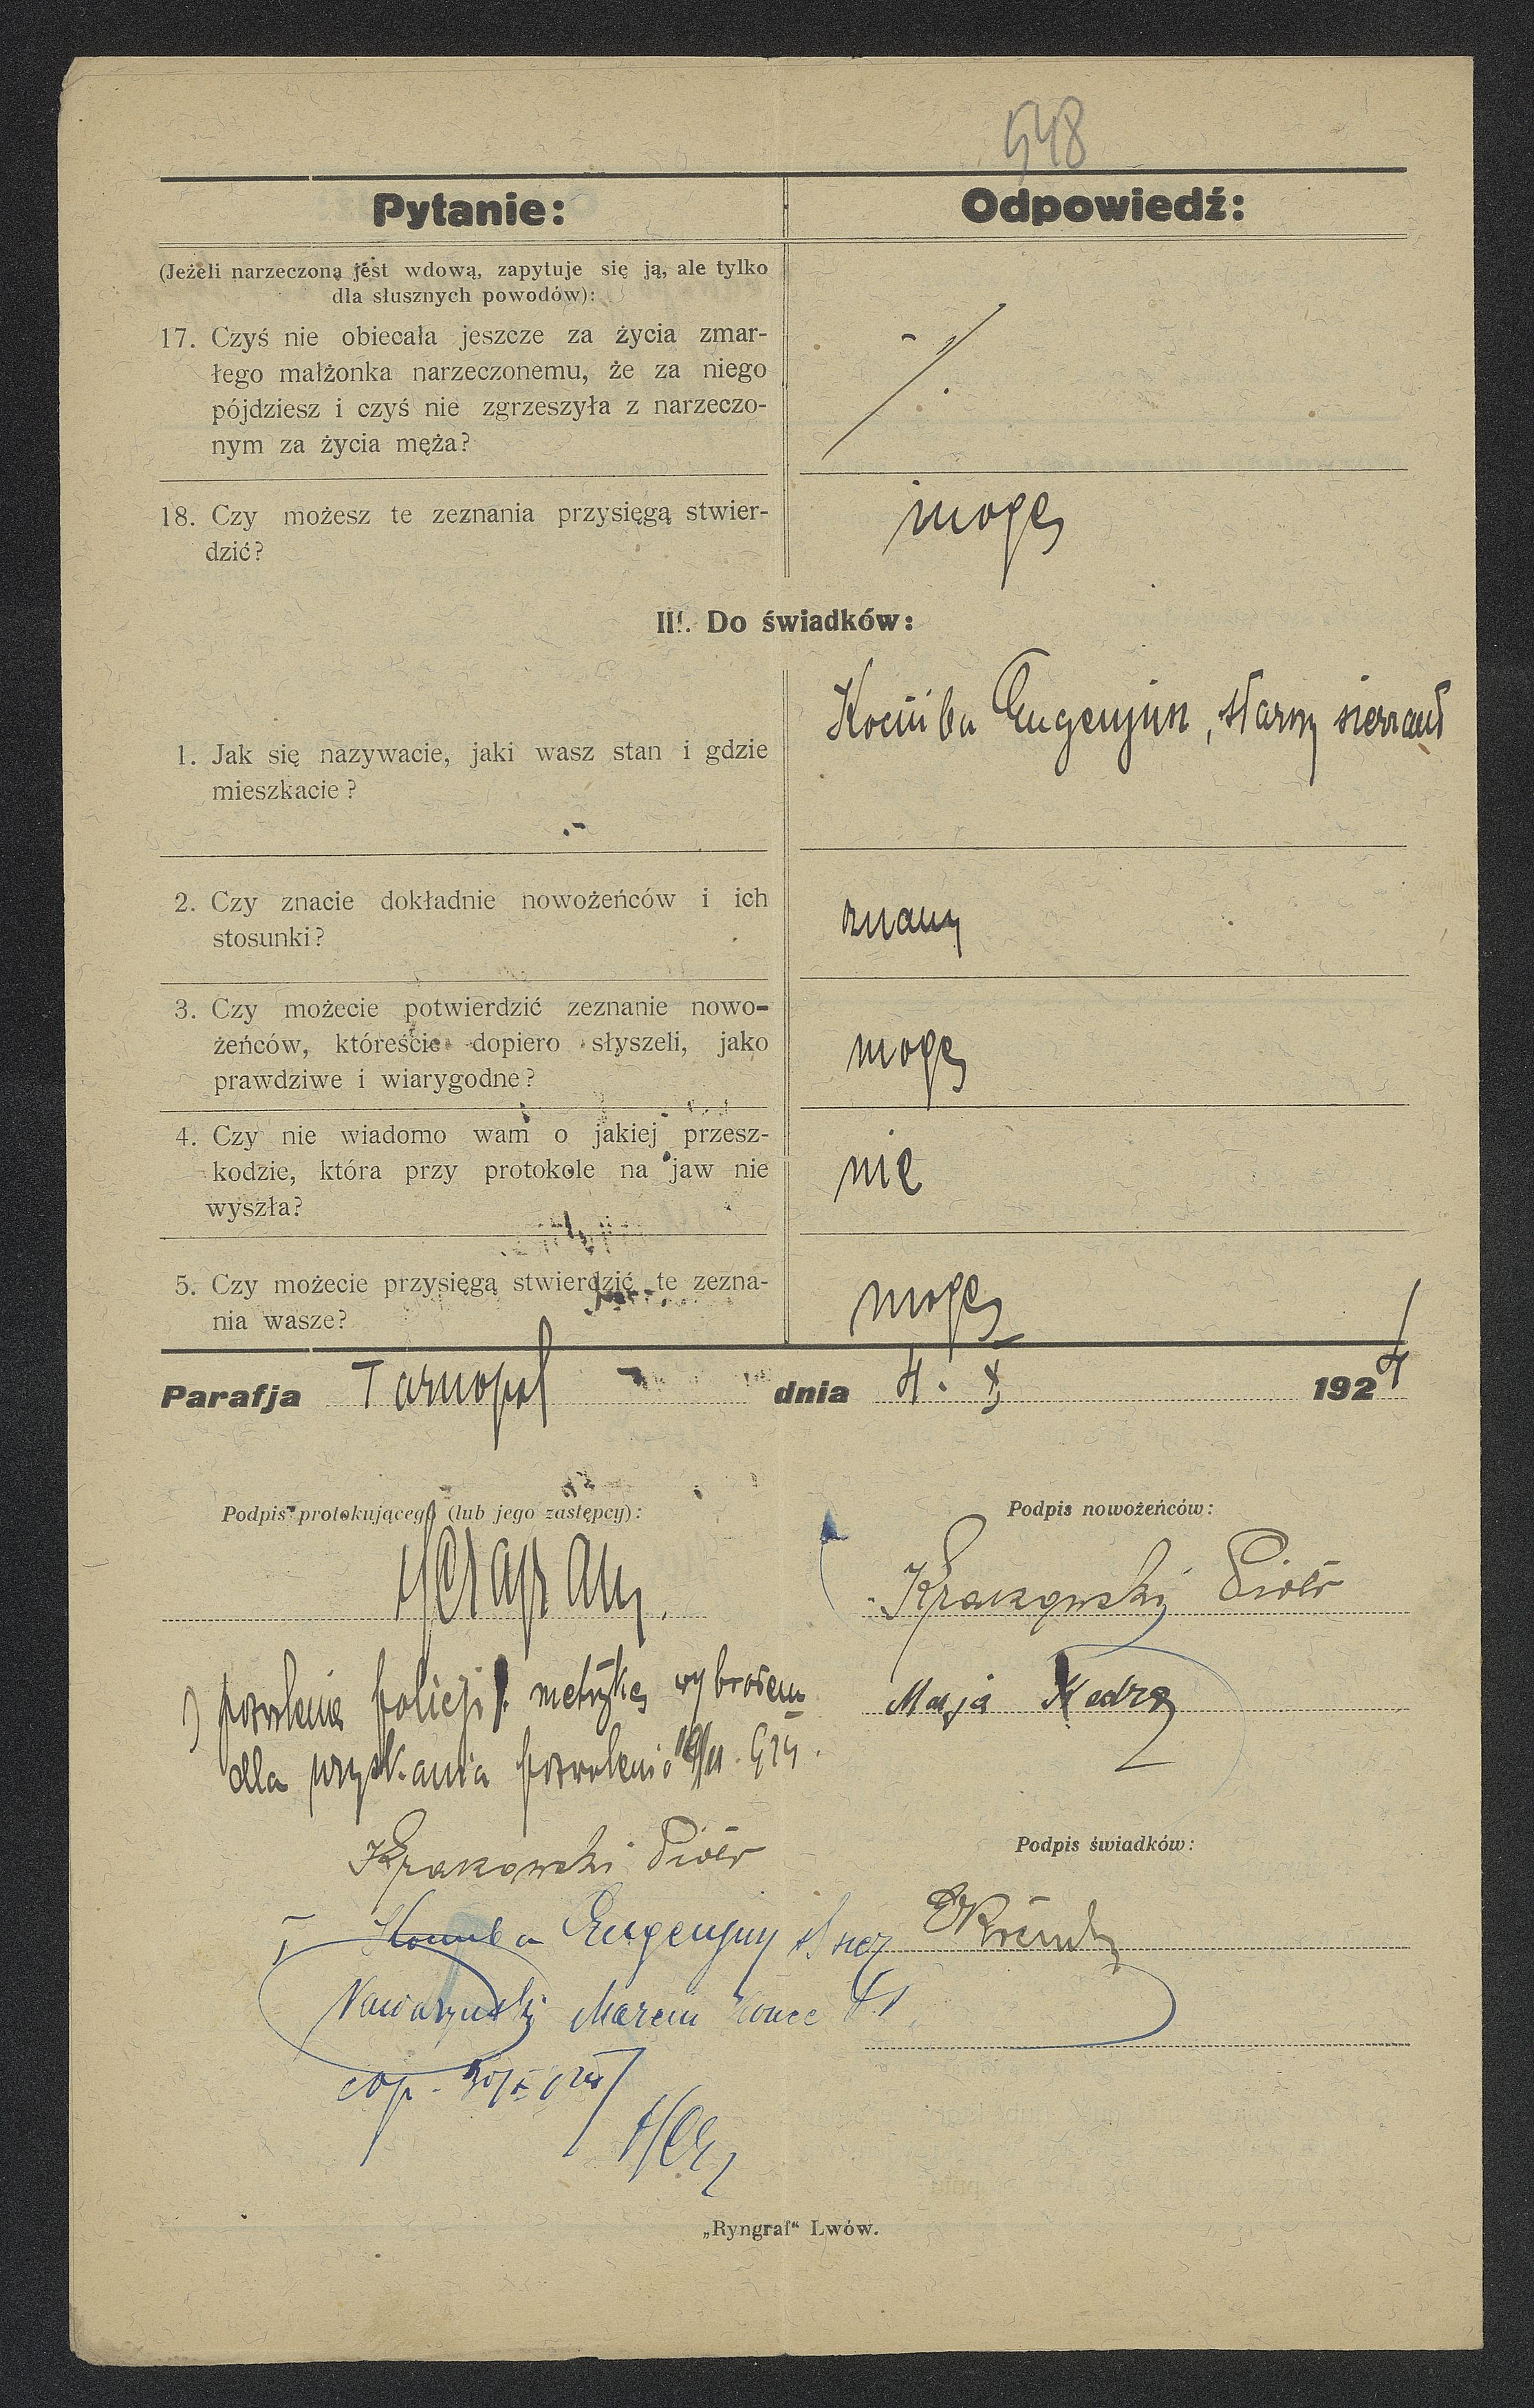 548
Pytanie:
Odpowiedź:
(Jeżeli narzeczoną jest wdową, zapytuje się ją, ale tylko
dla słusznych powodów):
17. Czyś nie obiecała jeszcze za życia zmar-
łego małżonka narzeczonemu, że za niego
pójdziesz i czyś nie zgrzeszyła z narzeczo-
nym za życia męża?
18. Czy możesz te zeznania przysięgą stwier-
dzić?
mogę
III. Do świadków:
1. Jak się nazywacie, jaki wasz stan i gdzie
mieszkacie?
Kociuba Eugenjusz, starszy sierżant
2. Czy znacie dokładnie nowożeńców i ich
stosunki?
znamy
3. Czy możecie potwierdzić zeznanie nowo-
żeńców, któreście dopiero słyszeli, jako
prawdziwe i wiarygodne?
mogę
4. Czy nie wiadomo wam o jakiej przesz-
kodzie, która przy protokole na jaw nie
wyszła?
nie
5. Czy możecie przysięgą stwierdzić te zezna-
nia wasze?
mogę
Parafja Tarnopol dnia 4. X 1924
Podpis protokującego (lub jego zastępcy):
Podpis nowożeńców:
Krakowski Piotr
metrykę wybrałem
dla uzyskania pozwolenia
Krakowski Piotr
Podpis świadków:
Kociuba Eugenjusz
Marcin
cop.
„Ryngraf“ Lwów.